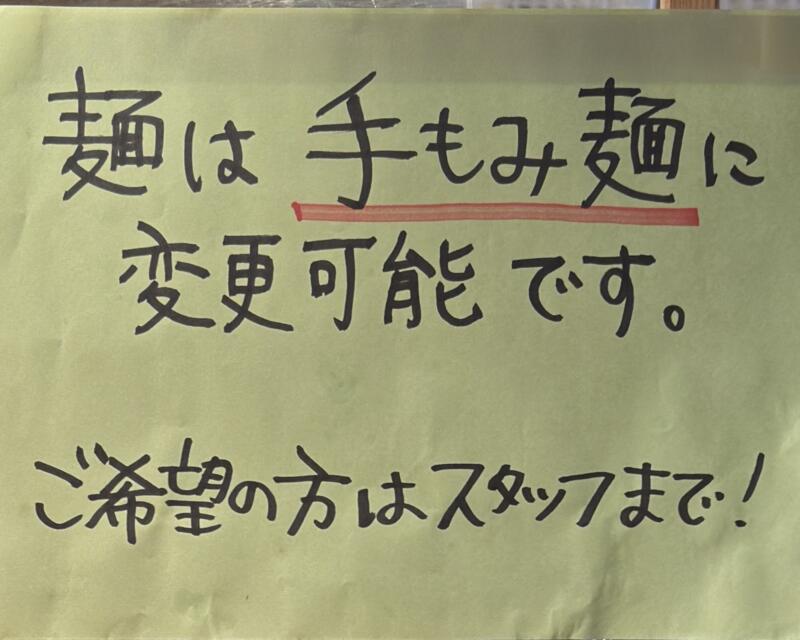 麺は 手もみ麺に
変更可能です。
ご希望の方はスタッフまで!